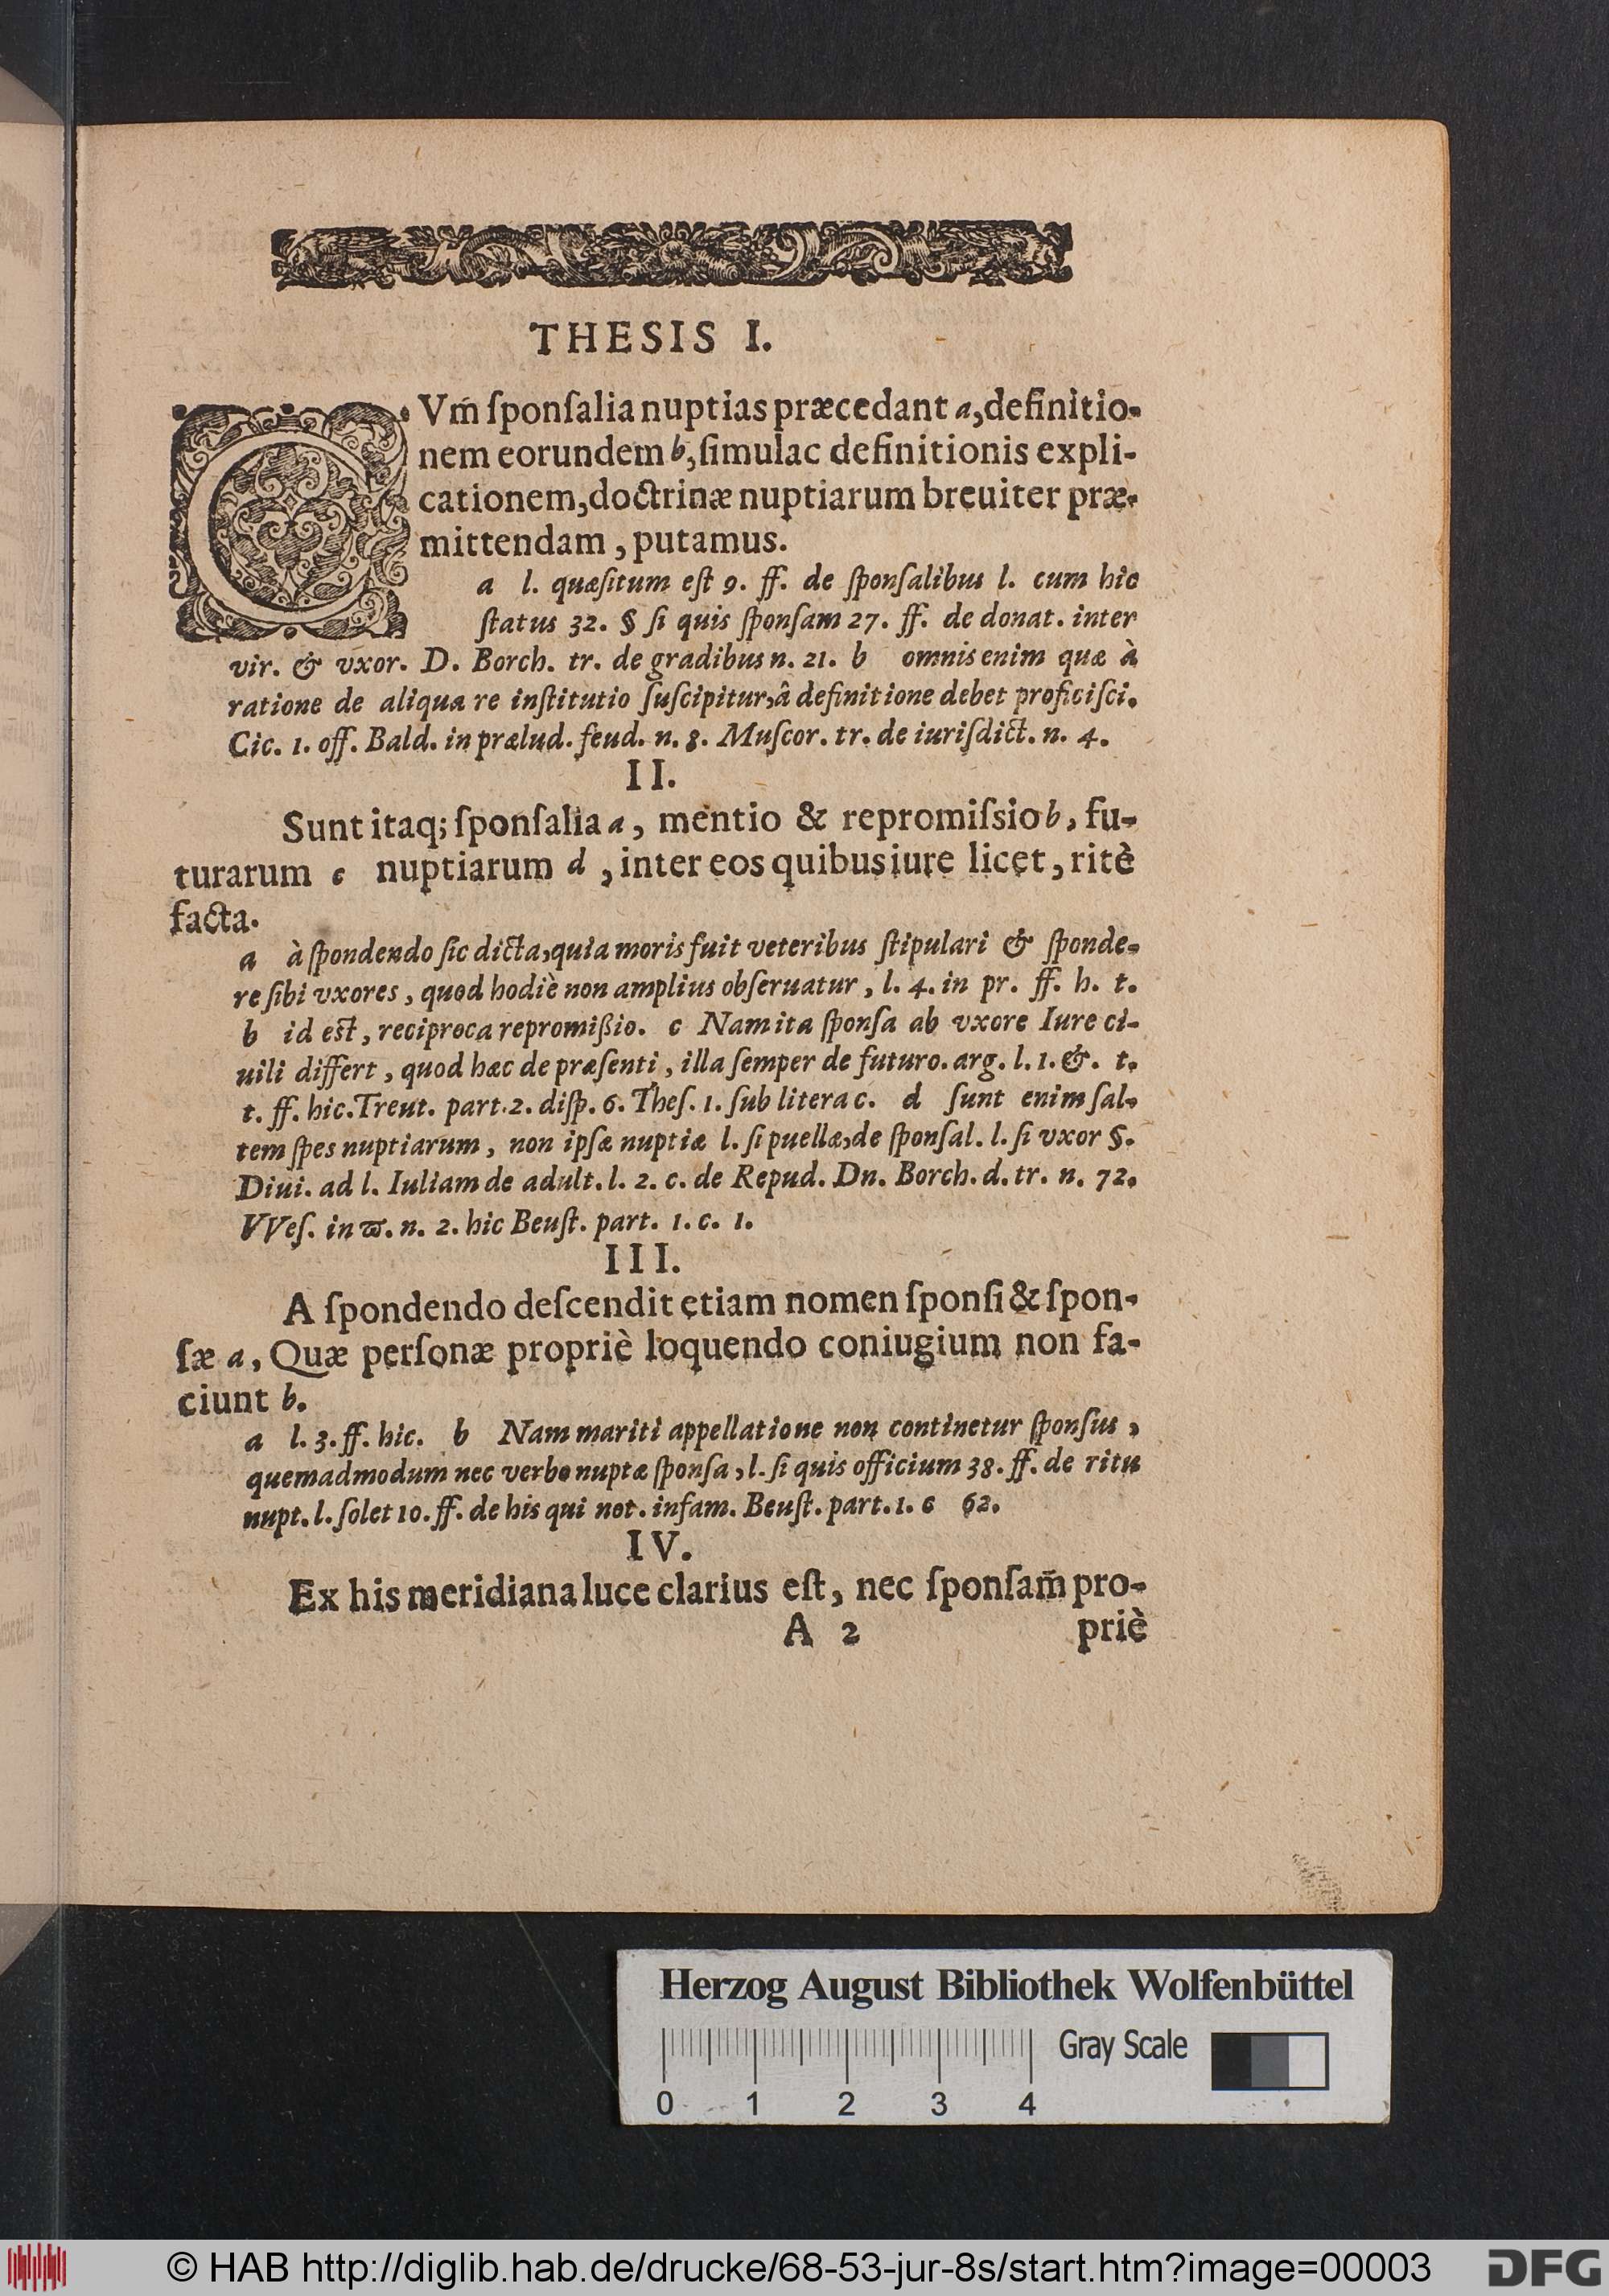 THESIS I.
CVm̃ ſponſalia nuptias præcedant a, definitio-
nem eorundem b, ſimulac definitionis expli-
cationem, doctrinæ nuptiarum breuiter præ-
mittendam, putamus.
a l. quæſitum eſt 9. ff. de ſponſalibus l. cum hic
ſtatus 32. § ſi quis ſponſam 27. ff. de donat. inter
vir. & vxor. D. Borch. tr. de gradibus n. 21. b omnis enim quæ à
ratione de aliqua re inſtitutio ſuſcipitur, â definitione debet proficiſci.
Cic. 1. off. Bald. in prælud. feud. n. 8. Muſcor. tr. de iuriſdict. n. 4.
II.
Sunt itaq; ſponſalia a, mentio & repromiſsio b, fu-
turarum c nuptiarum d, inter eos quibus iure licet, ritè
facta.
a à ſpondendo ſic dicta, quia moris fuit veteribus ſtipulari & ſponde-
re ſibi vxores, quod hodiè non amplius obſeruatur, l. 4. in pr. ff. h. t.
b id eſt, reciproca repromißio. c Nam ita ſponſa ab vxore Iure ci-
uili differt, quod hæc de præſenti, illa ſemper de futuro. arg. l. 1. &. t.
t. ff. hic. Treut. part. 2. diſp. 6. Theſ. 1. ſub litera c. d ſunt enim ſal-
tem ſpes nuptiarum, non ipſæ nuptiæ l. ſi puellæ, de ſponſal. l. ſi vxor §.
Diui. ad l. Iuliam de adult. l. 2. c. de Repud. Dn. Borch. d. tr. n. 72.
VVeſ. in ϖ. n. 2. hic Beuſt. part. 1. c. 1.
III.
A ſpondendo deſcendit etiam nomen ſponſi & ſpon-
ſæ a, Quæ perſonæ propriè loquendo coniugium non fa-
ciunt b.
a l. 3. ff. hic. b Nam mariti appellatione non continetur ſponſus,
quemadmodum nec verbo nuptæ ſponſa, l. ſi quis officium 38. ff. de ritu
nupt. l. ſolet 10. ff. de his qui not. infam. Beuſt. part. 1. c 62.
IV.
Ex his meridiana luce clarius eſt, nec ſponſam̃ pro-
A 2 priè
Herzog August Bibliothek Wolfenbüttel
Gray Scale
0 1 2 3 4
© HAB http://diglib.hab.de/drucke/68-53-jur-8s/start.htm?image=00003 DFG